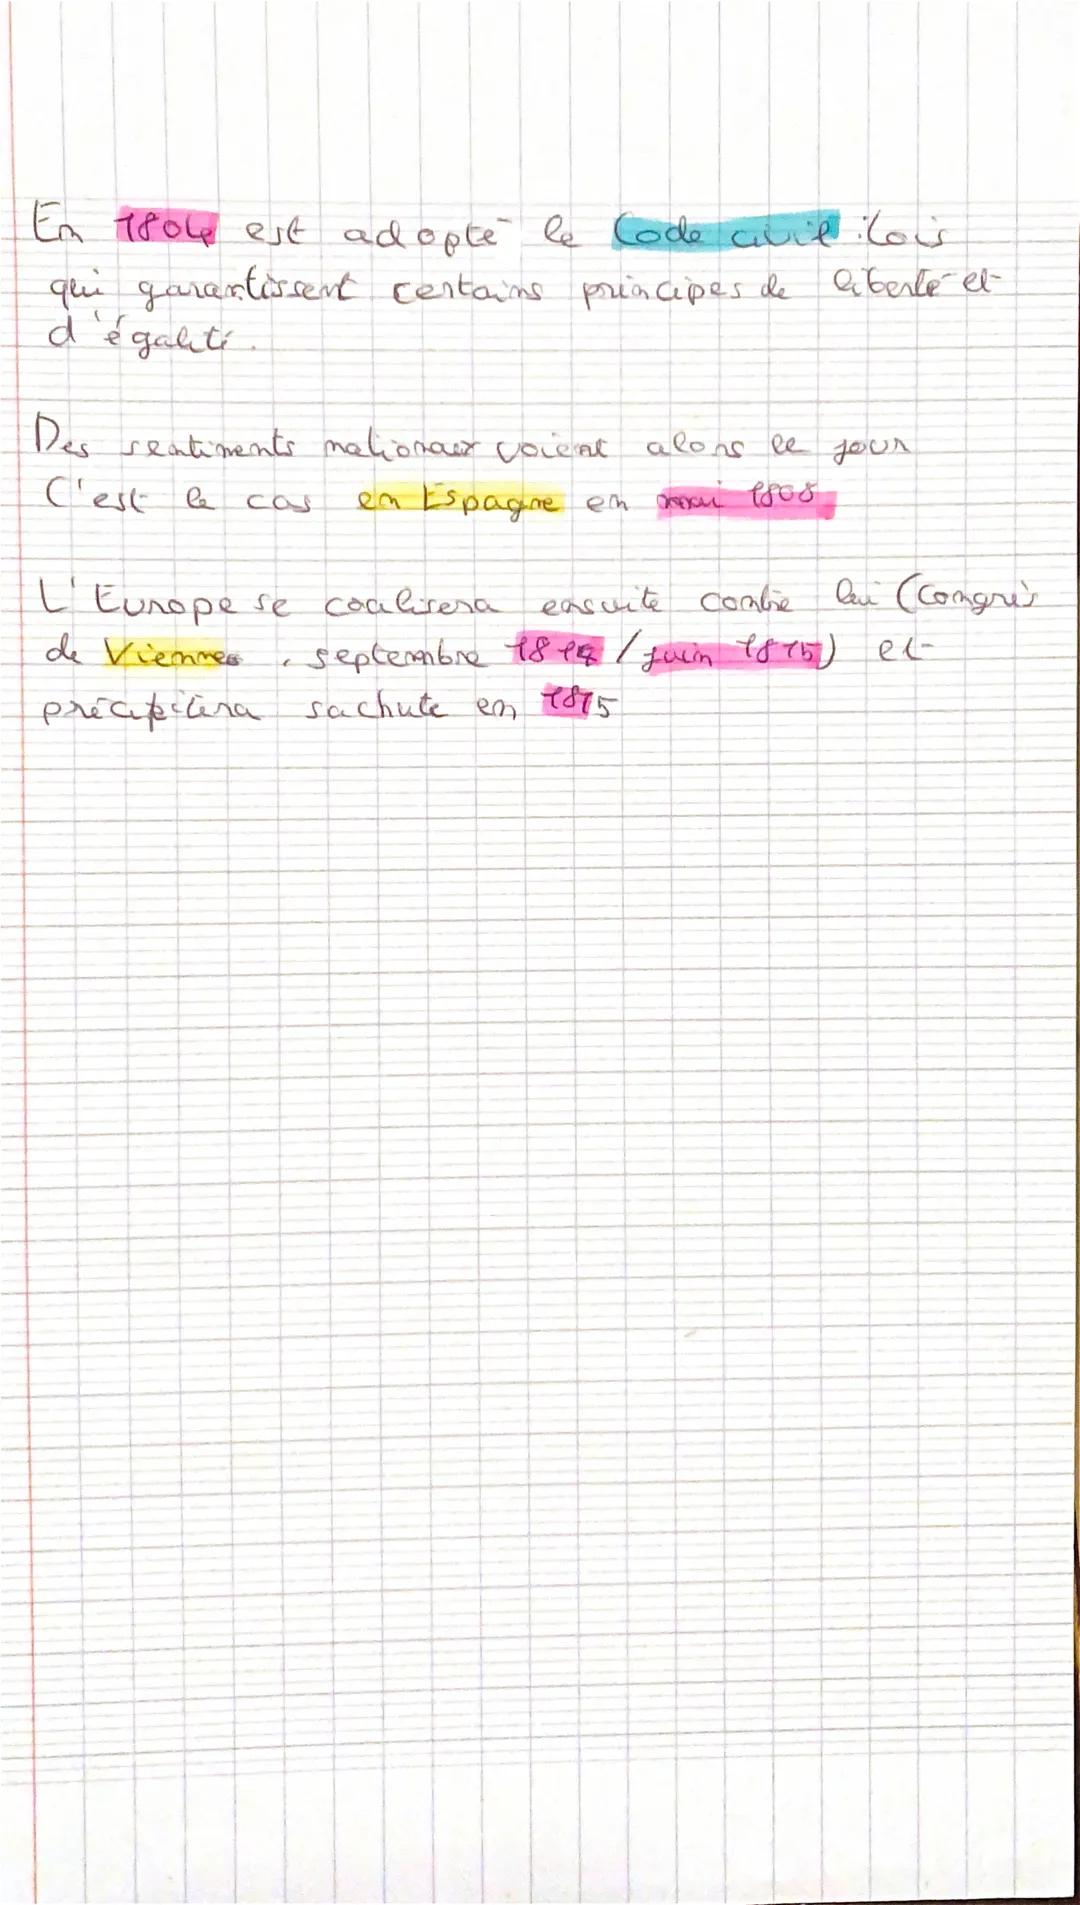 En 1804 est adopté le Code civil : Lois
qui garantissent certains principes de liberté et
d'égalité.
Des sentiments nationaux voient alors le jour
C'est le cas en Espagne en mai 1808
L'Europe se coalisera ensuite contre lui (Congrès
de Viennes, septembre 1814 / juin 1815) et
précipitera sa chute en 1815